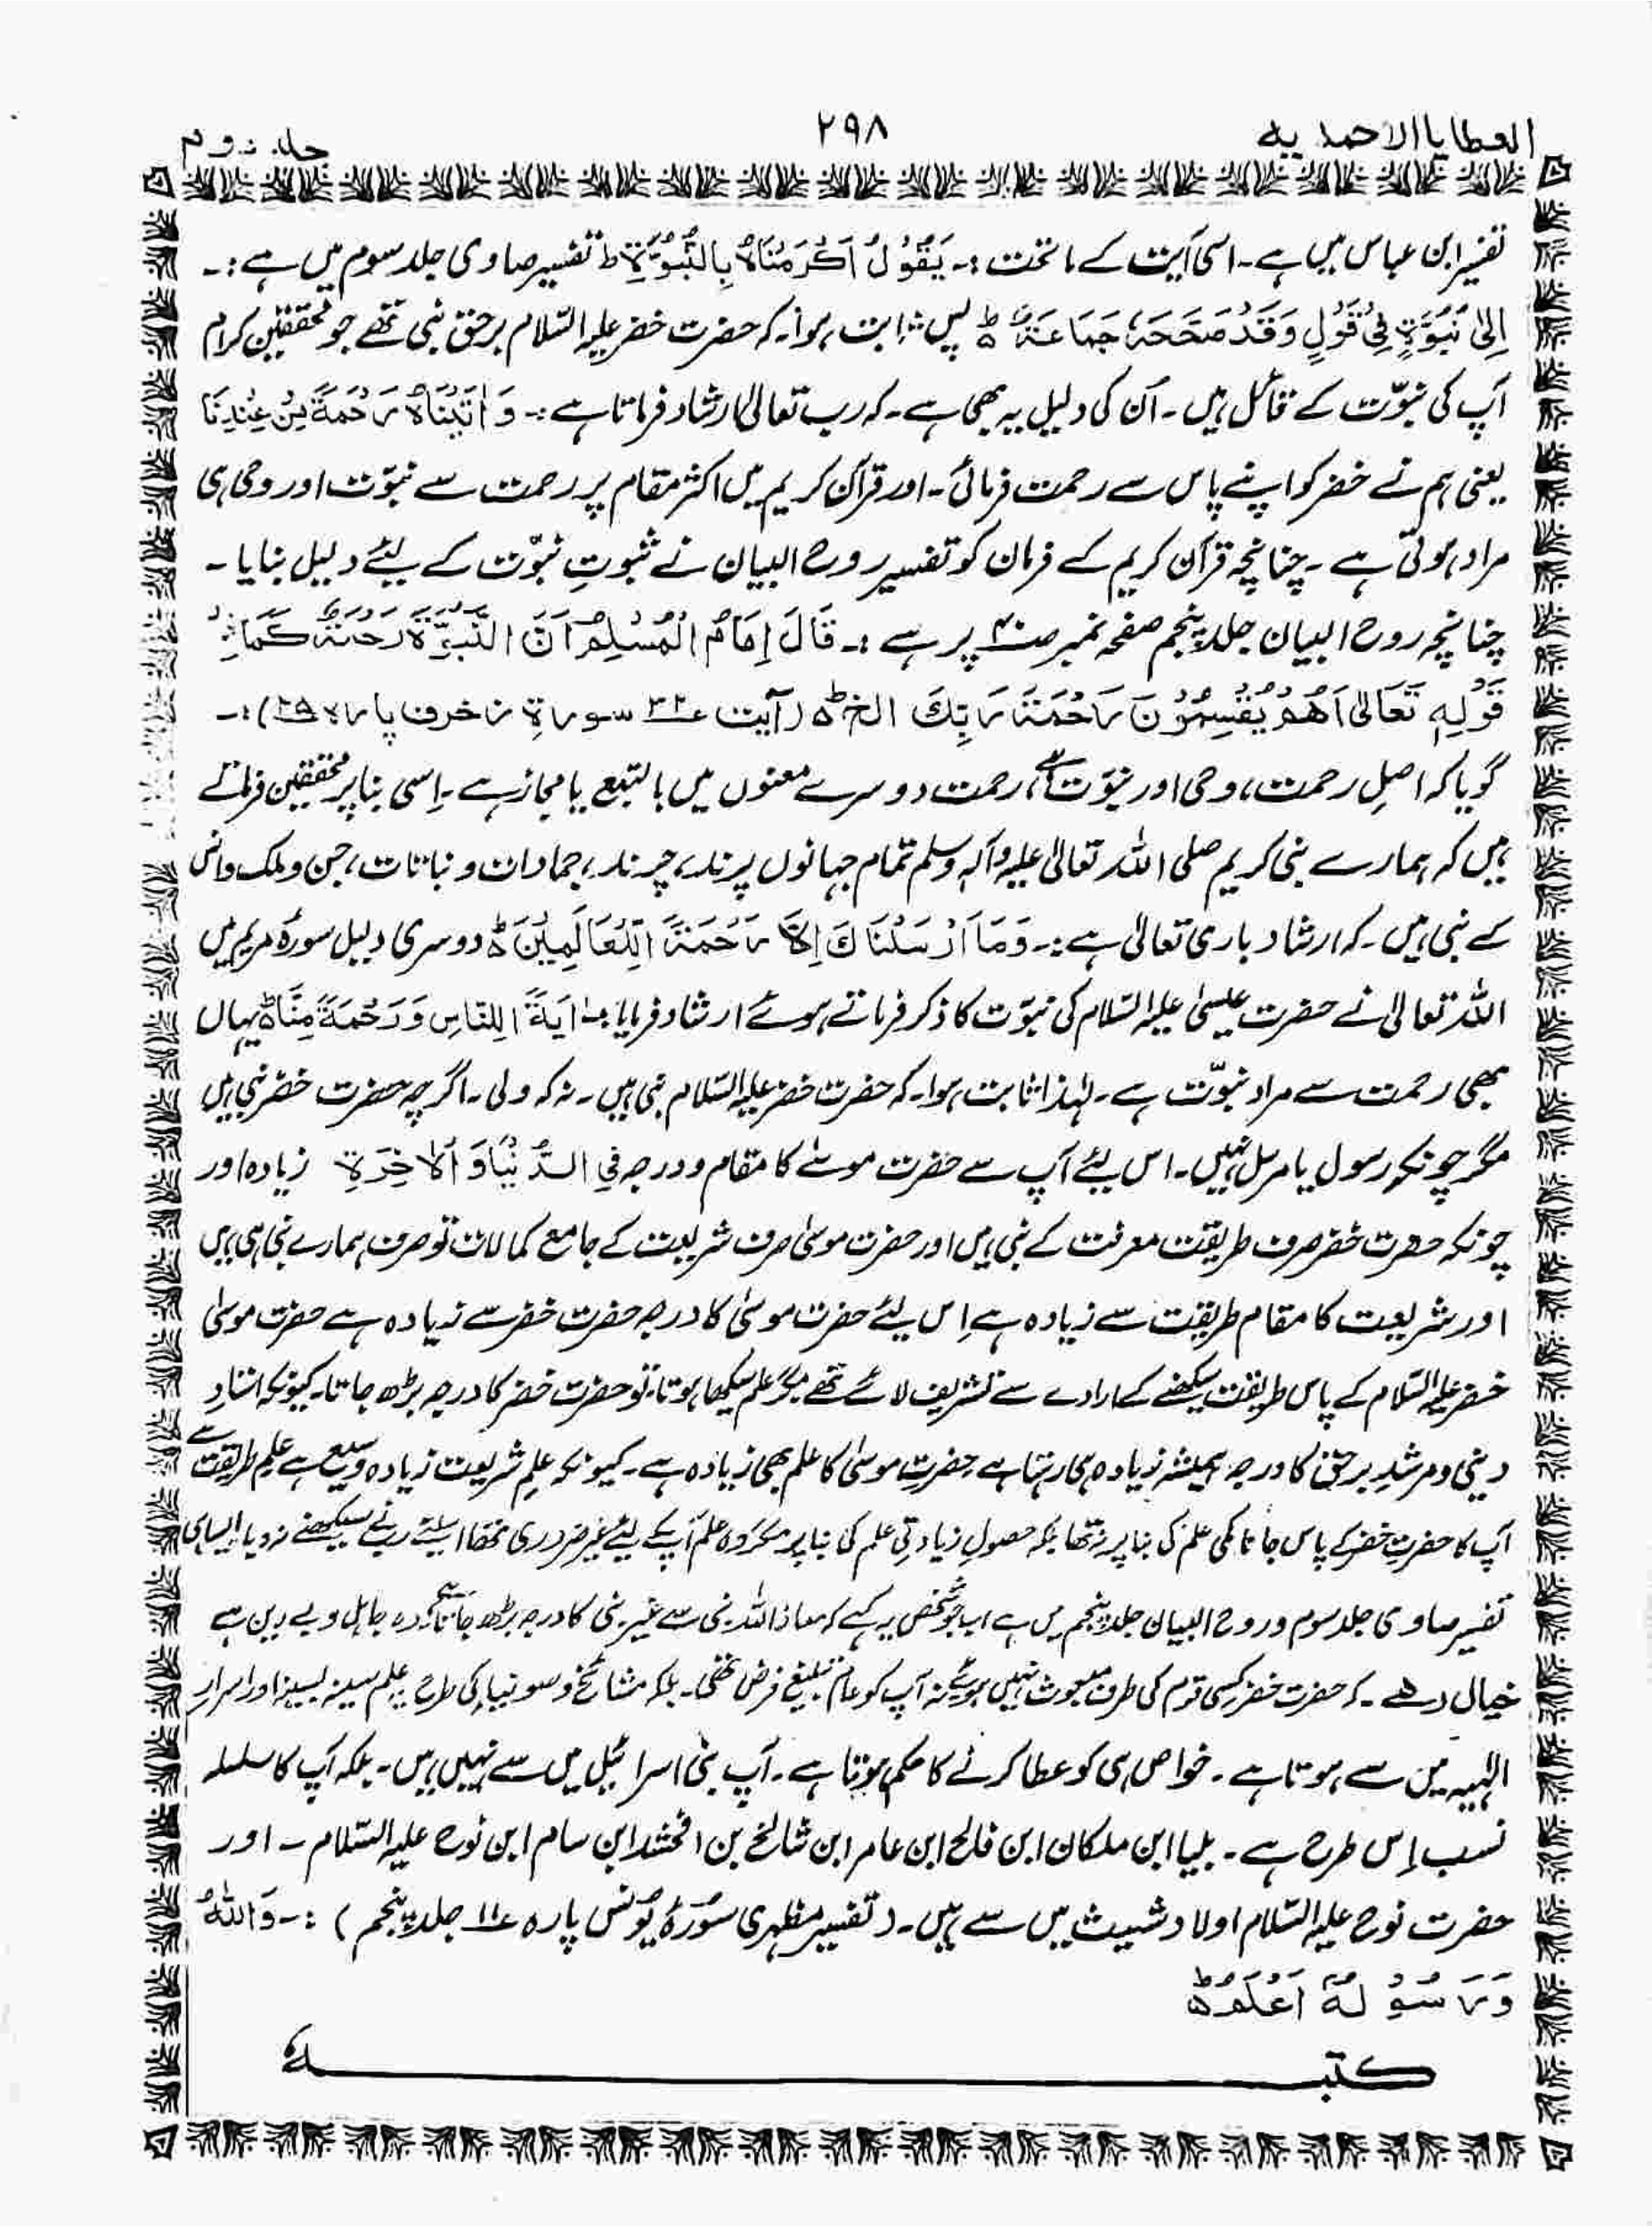 العطایا الاحمدیہ
۲۹۸
جلد دوم
تفسیر ابن عباس میں ہے۔ اسی آیت کے ماتحت :۔ یَقُوْلُ اَکْرَمْنَاہُ بِالنُّبُوَّۃِ ط تفسیر صاوی جلد سوم میں ہے :۔
اِلیٰ نُبُوَّۃٍ فِیْ قَوْلٍ وَقَدْ صَحَّحَہٗ جَمَاعَۃٌ ط پس ثابت ہوا۔ کہ حضرت خضر علیہ السّلام برحق نبی تھے جو محققین کرام
آپ کی نبوّت کے قائل ہیں۔ اُن کی دلیل یہ بھی ہے۔ کہ رب تعالیٰ ارشاد فرماتا ہے :۔ وَاٰتَیْنَاہُ رَحْمَۃً مِّنْ عِنْدِنَا
یعنی ہم نے خضر کو اپنے پاس سے رحمت فرمائی۔ اور قرآن کریم میں اکثر مقام پر رحمت سے نبوّت اور وحی ہی
مراد ہوتی ہے۔ چنانچہ قرآن کریم کے فرمان کو تفسیر روح البیان نے ثبوتِ نبوّت کے لیٔے دلیل بنایا۔
چنانچہ روح البیان جلد پنجم صفحہ نمبر پر ہے :۔ قَالَ اِمَامُ الْمُسْلِمُ اَنَّ النُّبُوَّۃَ رَحْمَۃٌ کَمَا فِیْ
قَوْلِہٖ تَعَالیٰ اَھُمْ یَقْسِمُوْنَ رَحْمَۃَ رَبِّکَ الخ ط (آیت ع۳۲ سورۃِ زخرف پارہ ۲۵) :۔
گویا کہ اصلِ رحمت، وحی اور نبوّت ہے، رحمت دوسرے معنوں میں بالتبع یا مجاز ہے۔ اِسی بنا پر محققین فرماتے
ہیں کہ ہمارے نبی کریم صلی اللہ تعالیٰ علیہ وآلہٖ وسلم تمام جہانوں پرند، چرند، جمادات و نباتات، جن و ملک و انس
کے نبی ہیں۔ کہ ارشاد باری تعالیٰ ہے :۔ وَمَا اَرْسَلْنَاکَ اِلَّا رَحْمَۃً لِّلْعَالَمِیْنَ ط دوسری دلیل سورۂ مریم میں
اللہ تعالیٰ نے حضرت عیسیٰ علیہ السّلام کی نبوّت کا ذکر فرماتے ہوئے ارشاد فرمایا :۔ اٰیَۃً لِلنَّاسِ وَرَحْمَۃً مِنَّا ط یہاں
بھی رحمت سے مراد نبوّت ہے۔ لہٰذا ثابت ہوا۔ کہ حضرت خضر علیہ السّلام نبی ہیں۔ نہ کہ ولی۔ اگرچہ حضرت خضر نبی ہیں
مگر چونکہ رسول یا مرسل نہیں۔ اس لیٔے آپ سے حضرت موسےٰ کا مقام و درجہ فِی الدُّنْیَا وَالْاٰخِرَۃِ زیادہ اور
چونکہ حضرت خضر صرف طریقت معرفت کے نبی ہیں اور حضرت موسیٰ صرف شریعت کے جامع کمالات تو صرف ہمارے نبی ہی ہیں
اور شریعت کا مقام طریقت سے زیادہ ہے اِس لئے حضرت موسیٰ کا درجہ حضرت خضر سے زیادہ ہے حضرت موسیٰ
خضر علیہ السّلام کے پاس طریقت سیکھنے کے ارادے سے تشریف لائے تھے مگر علم سیکھا ہوتا۔ تو حضرت خضر کا درجہ بڑھ جاتا۔ کیونکہ استادِ
دینی و مرشدِ برحق کا درجہ ہمیشہ زیادہ ہی رہتا ہے حضرتِ موسیٰ کا علم بھی زیادہ ہے۔ کیونکہ علمِ شریعت زیادہ وسیع ہے علمِ طریقت سے
آپ کا حضرتِ خضر کے پاس جانا کمی علم کی بنا پر نہ تھا بلکہ حصولِ زیادتیِ علم کی بنا پر مگر وہ علم آپ کے لیٔے غیر ضروری تھا اسلیٔے رب نے سیکھنے نہ دیا ایسا ہی
تفسیر صاوی جلد سوم و روح البیان جلد پنجم میں ہے اب جو شخص یہ کہے کہ معاذ اللہ نبی سے غیر نبی کا درجہ بڑھ جاتا ہے وہ جاہل و بے دین ہے
خیال رہے۔ کہ حضرت خضر کسی قوم کی طرف مبعوث نہیں ہوئے نہ آپ کو عام تبلیغ فرض تھی۔ بلکہ مشائخ و صوفیاء کی طرح علم سینہ بسینہ اور اسرارِ
الٰہیہ میں سے ہوتا ہے۔ خواص ہی کو عطا کرنے کا حکم ہوتا ہے۔ آپ بنی اسرائیل میں سے نہیں ہیں۔ بلکہ آپ کا سلسلہ
نسب اِس طرح ہے۔ بلیا ابن ملکان ابن فالح ابن عامر ابن شالخ بن ارفخشد ابن سام ابن نوح علیہ السّلام۔ اور
حضرت نوح علیہ السّلام اولاد شیث میں سے ہیں۔ (تفسیر مظہری سورۂ یونس پارہ ع۱۱ جلد پنجم) :۔ وَاللہُ
وَرَسُوْلُہٗ اَعْلَمُ ط
کتبـــــــہٗ